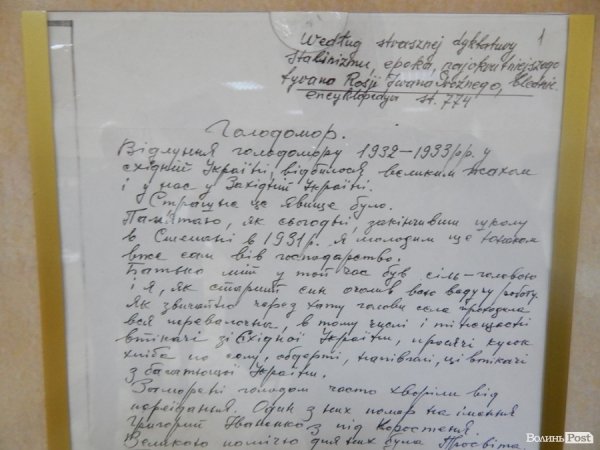 1
Według strasznej dyktatury
Stalinizmu, epoka, najokrutniejszego
tyrana Rosji Iwana Groźnego,
encyklopedja st. 774
Голодомор.
Відлуння голодомору 1932–1933 р.р. у
східній Україні, відбилося великим жахом
і у нас у Західній Україні.
Страшне це явище було.
Пам'ятаю, як сьогодні, закінчивши школу
в 1931 р. я молодим ще юнаком
вже сам вів господарство.
Батько мій у той час був сіль-головою
і я, як старший син очолив всю ведучу роботу.
Як звичайно через хату голови села проходила
вся в тому числі і ті нещасні
втікачі зі Східної України, просячі кусок
хліба по селу, обдерті, напівживі, ці втікачі
з багатющої України.
Заморені голодом часто хворіли від
переїдання. Один з них помер на імення
Григорий Іваненко з під Коростеня.
Великою помічю для них була Просвіта.
ВолиньPost